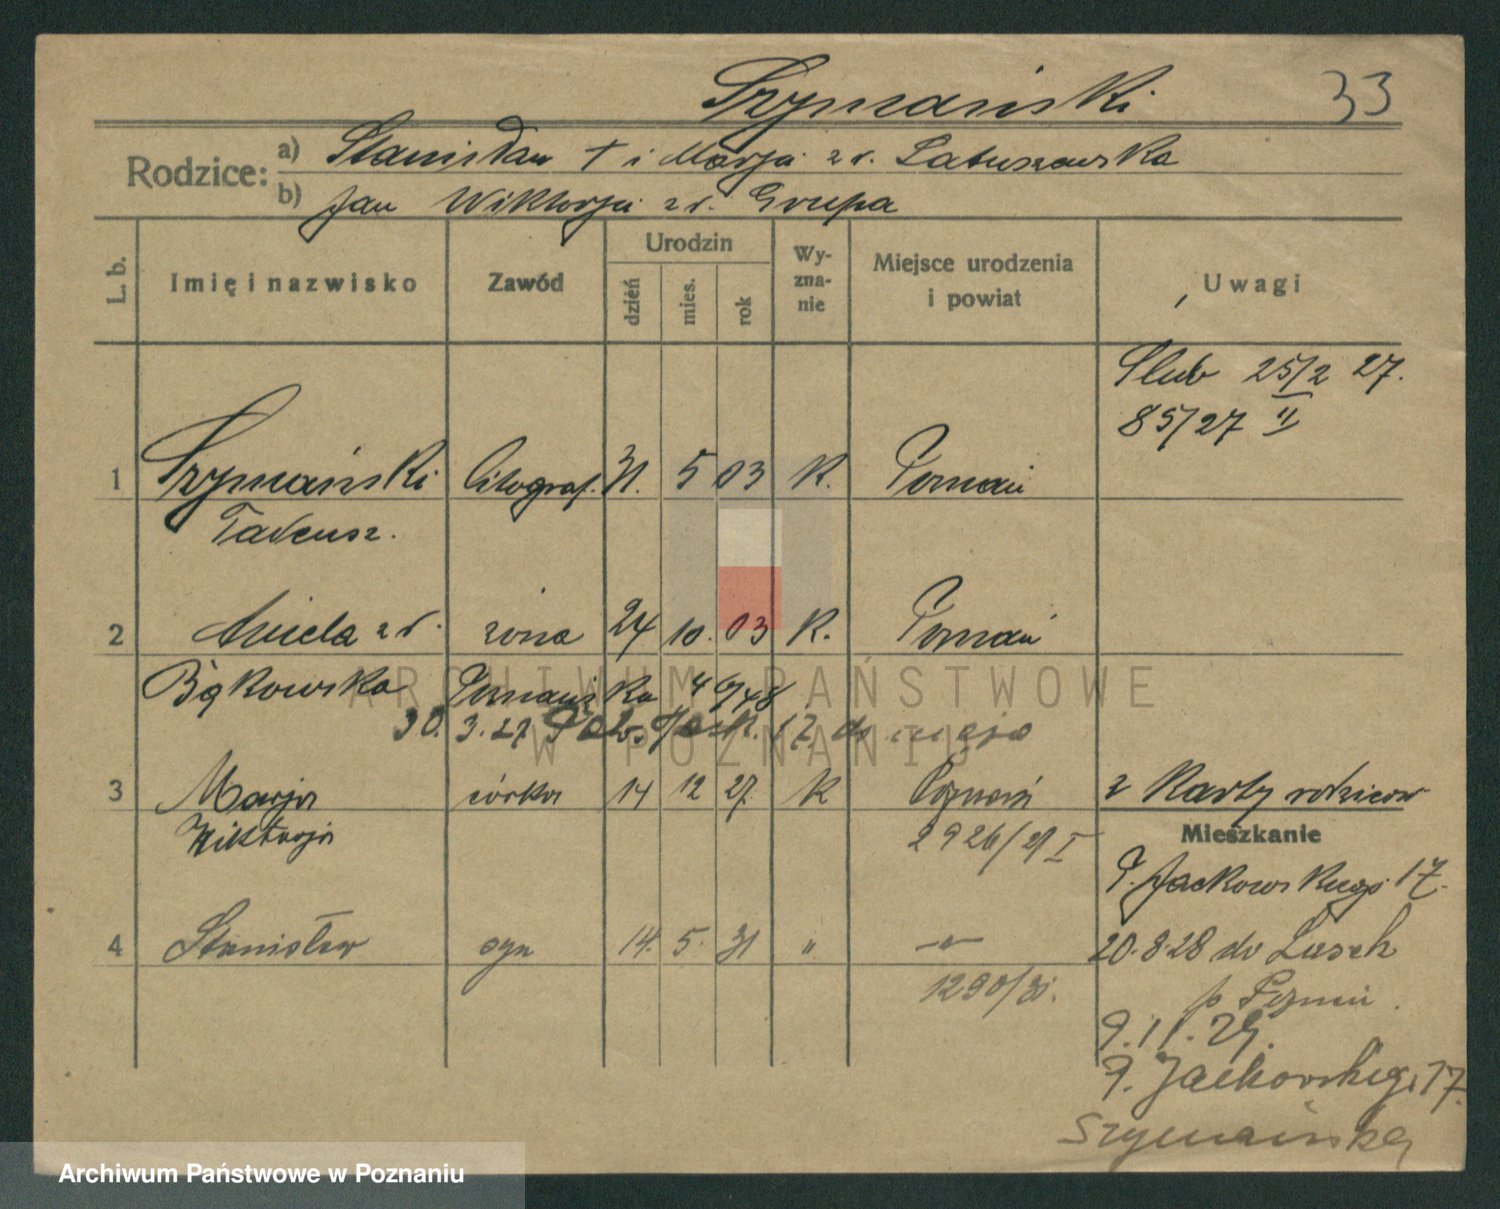 Szymański 33
Rodzice: a) Stanisław † i Marja z d. Latuszewska
b) Jan Wiktorja z d. Grupa
L. b. Imię i nazwisko Zawód Urodzin dzień mies. rok Wyznanie Miejsce urodzenia i powiat Uwagi
Ślub 25/2 27.
85/27 II
1 Szymański litograf. 31. 5 03 K. Poznań
Tadeusz.
2 Aniela z d. żona 24 10. 03 K. Poznań
Bąkowska Poznańska
ARCHIWUM PAŃSTWOWE
30. 3. 27
W POZNANIU
3 Marja córka 14 12 27. K Poznań z Karty rodziców
Wiktorja 2926/27 I
Mieszkanie
P. Jackowskiego 17.
4 Stanisław syn 14. 5. 31 " -"- 20.8.28 do Lusek
1290/31. p Poznań.
9.11.29.
P. Jackowskiego 17.
Szymańska
Archiwum Państwowe w Poznaniu